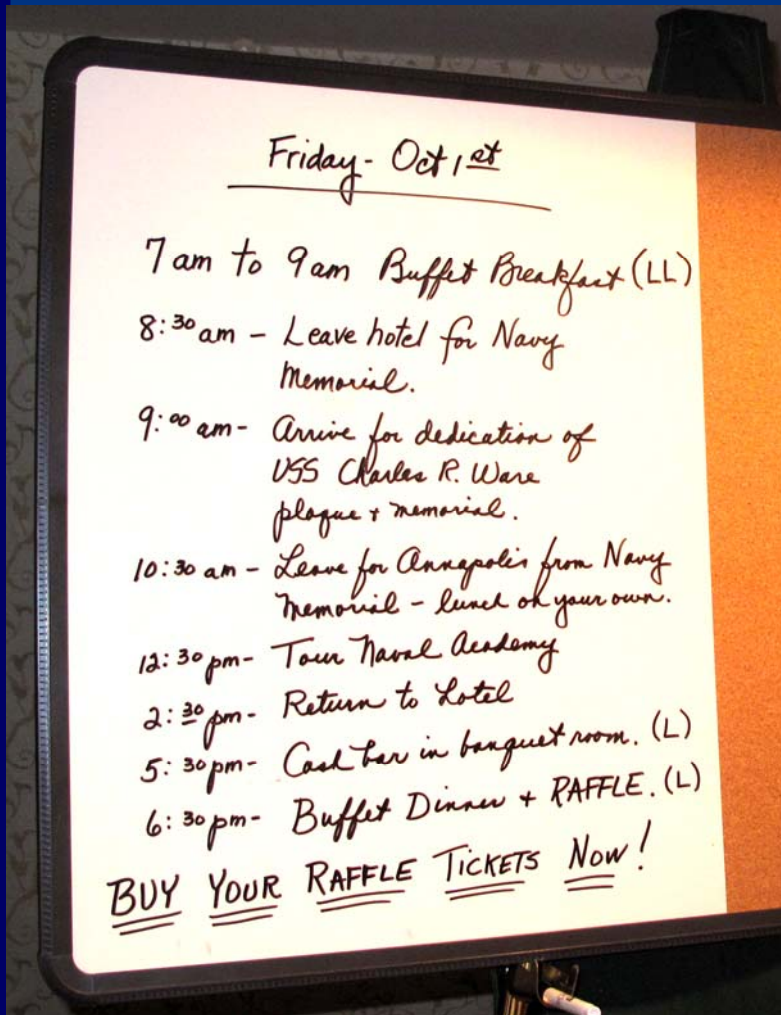 Friday - Oct 1st
7 am to 9 am Buffet Breakfast (LL)
8:30 am - Leave hotel for Navy
Memorial.
9:00 am - Arrive for dedication of
USS Charles R. Ware
plaque + memorial.
10:30 am - Leave for Annapolis from Navy
Memorial - lunch on your own.
12:30 pm - Tour Naval Academy
2:30 pm - Return to Hotel
5:30 pm - Cash bar in banquet room. (L)
6:30 pm - Buffet Dinner + RAFFLE. (L)
BUY YOUR RAFFLE TICKETS NOW!